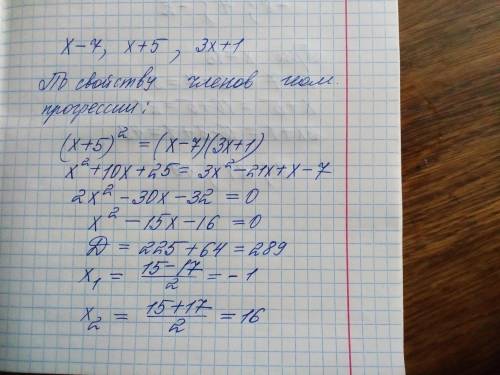 x-7, x+5, 3x+1
По свойству членов геом.
прогрессии:
(x+5)² = (x-7)(3x+1)
x²+10x+25 = 3x²-21x+x-7
2x²-30x-32=0
x²-15x-16=0
D = 225+64=289
x₁ = (15-17)/2 = -1
x₂ = (15+17)/2 = 16